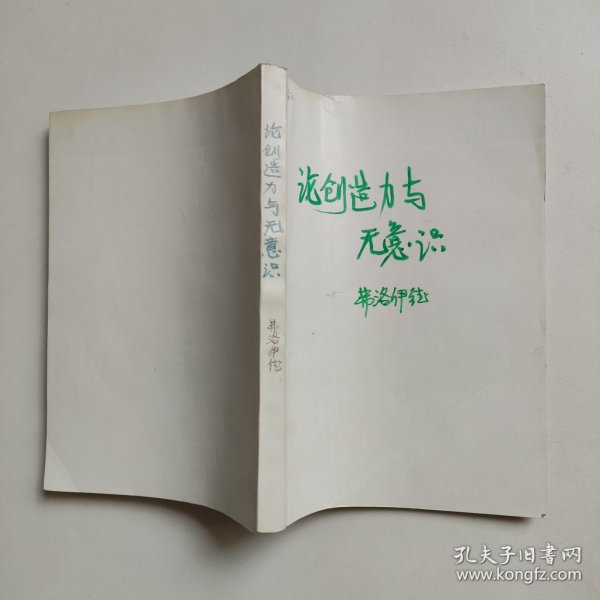 论创造力与无意识
弗洛伊德
论创造力与
无意识
弗洛伊德
孔夫子旧书网
www.kongfz.com